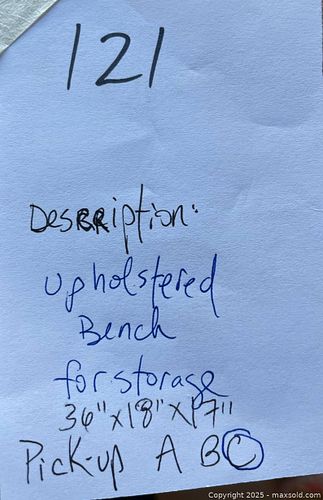 121
Description:
Upholstered
Bench
for storage
36"x18"x17"
Pick-up A B C
Copyright 2025 - maxsold.com